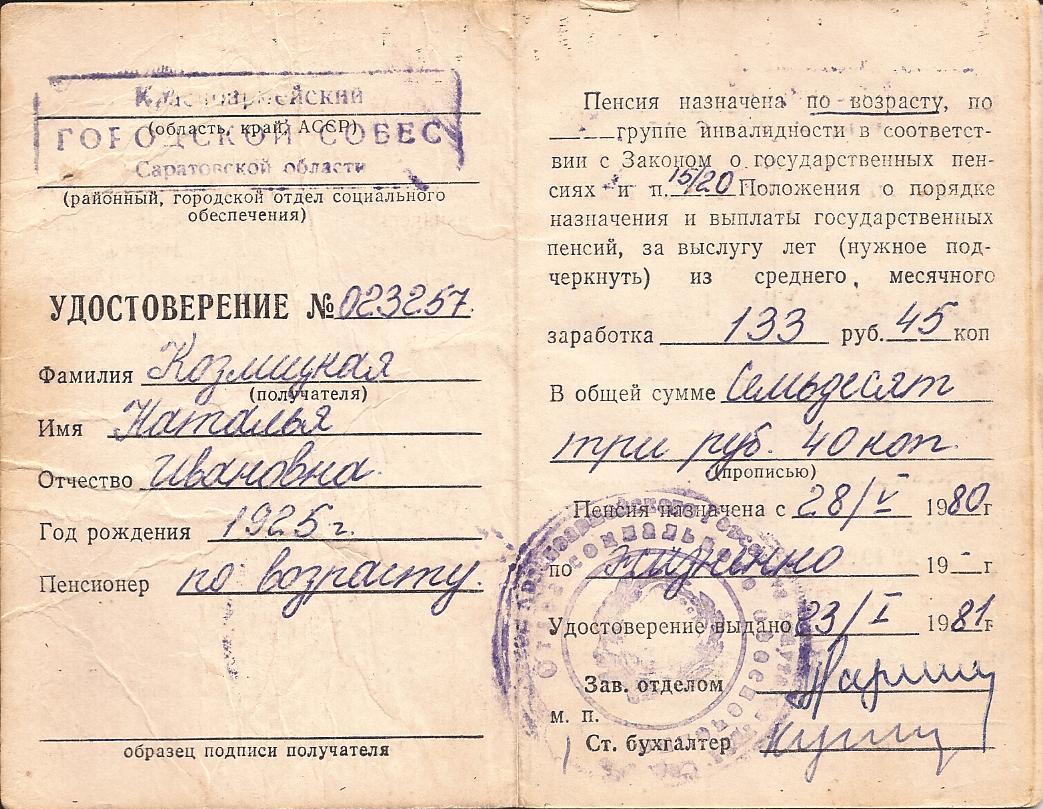 Красноармейский
(область, край, АССР)
ГОРОДСКОЙ СОБЕС
Саратовской области
(районный, городской отдел социального
обеспечения)
УДОСТОВЕРЕНИЕ № 023257
Фамилия Козлицкая
(получателя)
Имя Наталья
Отчество Ивановна
Год рождения 1925 г.
Пенсионер по возрасту.
образец подписи получателя
Пенсия назначена по возрасту, по
группе инвалидности в соответст-
вии с Законом о государственных пен-
сиях и п. 15/20 Положения о порядке
назначения и выплаты государственных
пенсий, за выслугу лет (нужное под-
черкнуть) из среднего, месячного
заработка 133 руб. 45 коп
В общей сумме Семьдесят
три руб. 40 коп.
(прописью)
Пенсия назначена с 28/V 1980 г
по жизненно 19— г
Удостоверение выдано 23/I 1981 г
Зав. отделом
м. п.
Ст. бухгалтер